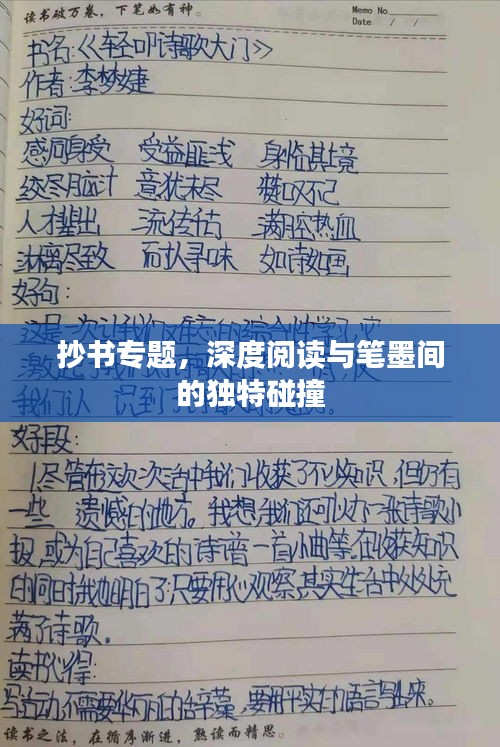 读书破万卷，下笔如有神。
Memo No.
Date / /
书名:《轻叩诗歌大门》
作者:李梦婕
好词:
感同身受 受益匪浅 身临其境
绞尽脑汁 意犹未尽 赞叹不已
人才辈出 流传千古 满腔热血
淋漓尽致 耐人寻味 如诗如画
好句:
这是一次让我们难忘的综合性学习
抄书专题，深度阅读与笔墨间
的独特碰撞
我们认 识到了
好段:
1尽管在这次活动中我们收获了不少知识,但仍有
一些 遗憾的地方。我想,我们还可以办一张诗歌小
报,或为自己喜欢的诗谱一首小曲等。在收获知识
的同时我也明白了:只要用心观察,其实生活中处处充
满了诗歌。
读书心得:
写活动,不需要华丽的辞藻,要用平实的语言写出来。
读书之法，在循序渐进，熟读而精思。